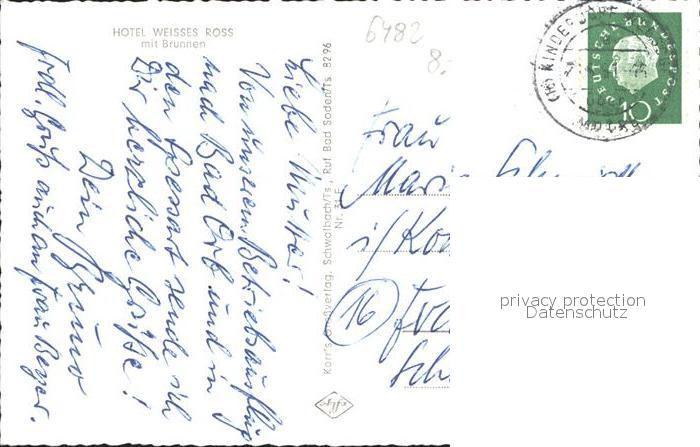 HOTEL WEISSES ROSS
mit Brunnen
6482
8.-
Liebe Mutter!
Von unserem Betriebsausflug
nach Bad Orb und in
den Spessart sende ich
Dir herzliche Grüße!
Dein Bruno
Frdl. Gruß auch an Frau Berger.
Korr's Großverlag, Schwalbach/Ts., Ruf Bad Soden/Ts. 8296
Nr.
Agfa
DEUTSCHE BUNDESPOST
10
Frau
i/
16
privacy protection
Datenschutz